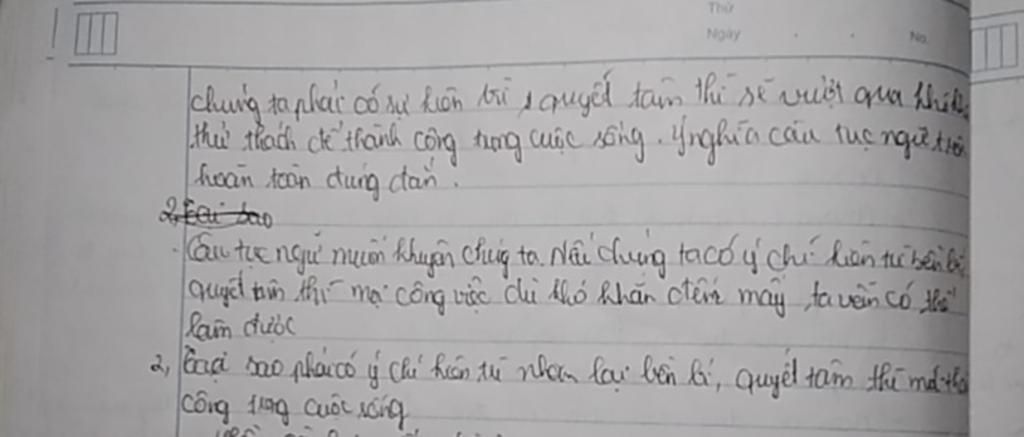 Thứ
Ngày No.
chúng ta phải có sự kiên trì, quyết tâm thì sẽ vượt qua khó
thử thách để thành công trong cuộc sống. Ý nghĩa câu tục ngữ trên
hoàn toàn đúng đắn.
2, Tại sao
- Câu tục ngữ muốn khuyên chúng ta. Nếu chúng ta có ý chí kiên trì bền bỉ
quyết tâm thì mọi công việc dù khó khăn đến mấy, ta vẫn có thể
làm được
2, Tại sao phải có ý chí kiên trì nhẫn lại bền bỉ, quyết tâm thì mới thà
công trong cuộc sống